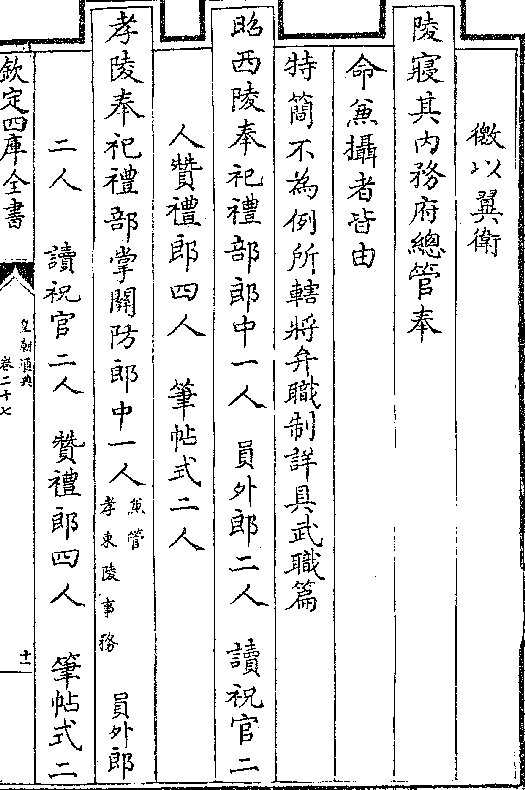 徼以翼衛
陵寢其内務府總管奉
命兼攝者皆由
特簡不為例所轄將弁職制詳具武職篇
昭西陵奉祀禮部郎中一人 員外郎二人 讀祝官二
人贊禮郎四人 筆帖式二人
孝陵奉祀禮部掌關防郎中一人兼管孝東陵事務 員外郎
二人 讀祝官二人 贊禮郎四人 筆帖式二
欽定四庫全書
皇朝通典
卷二十七
十一